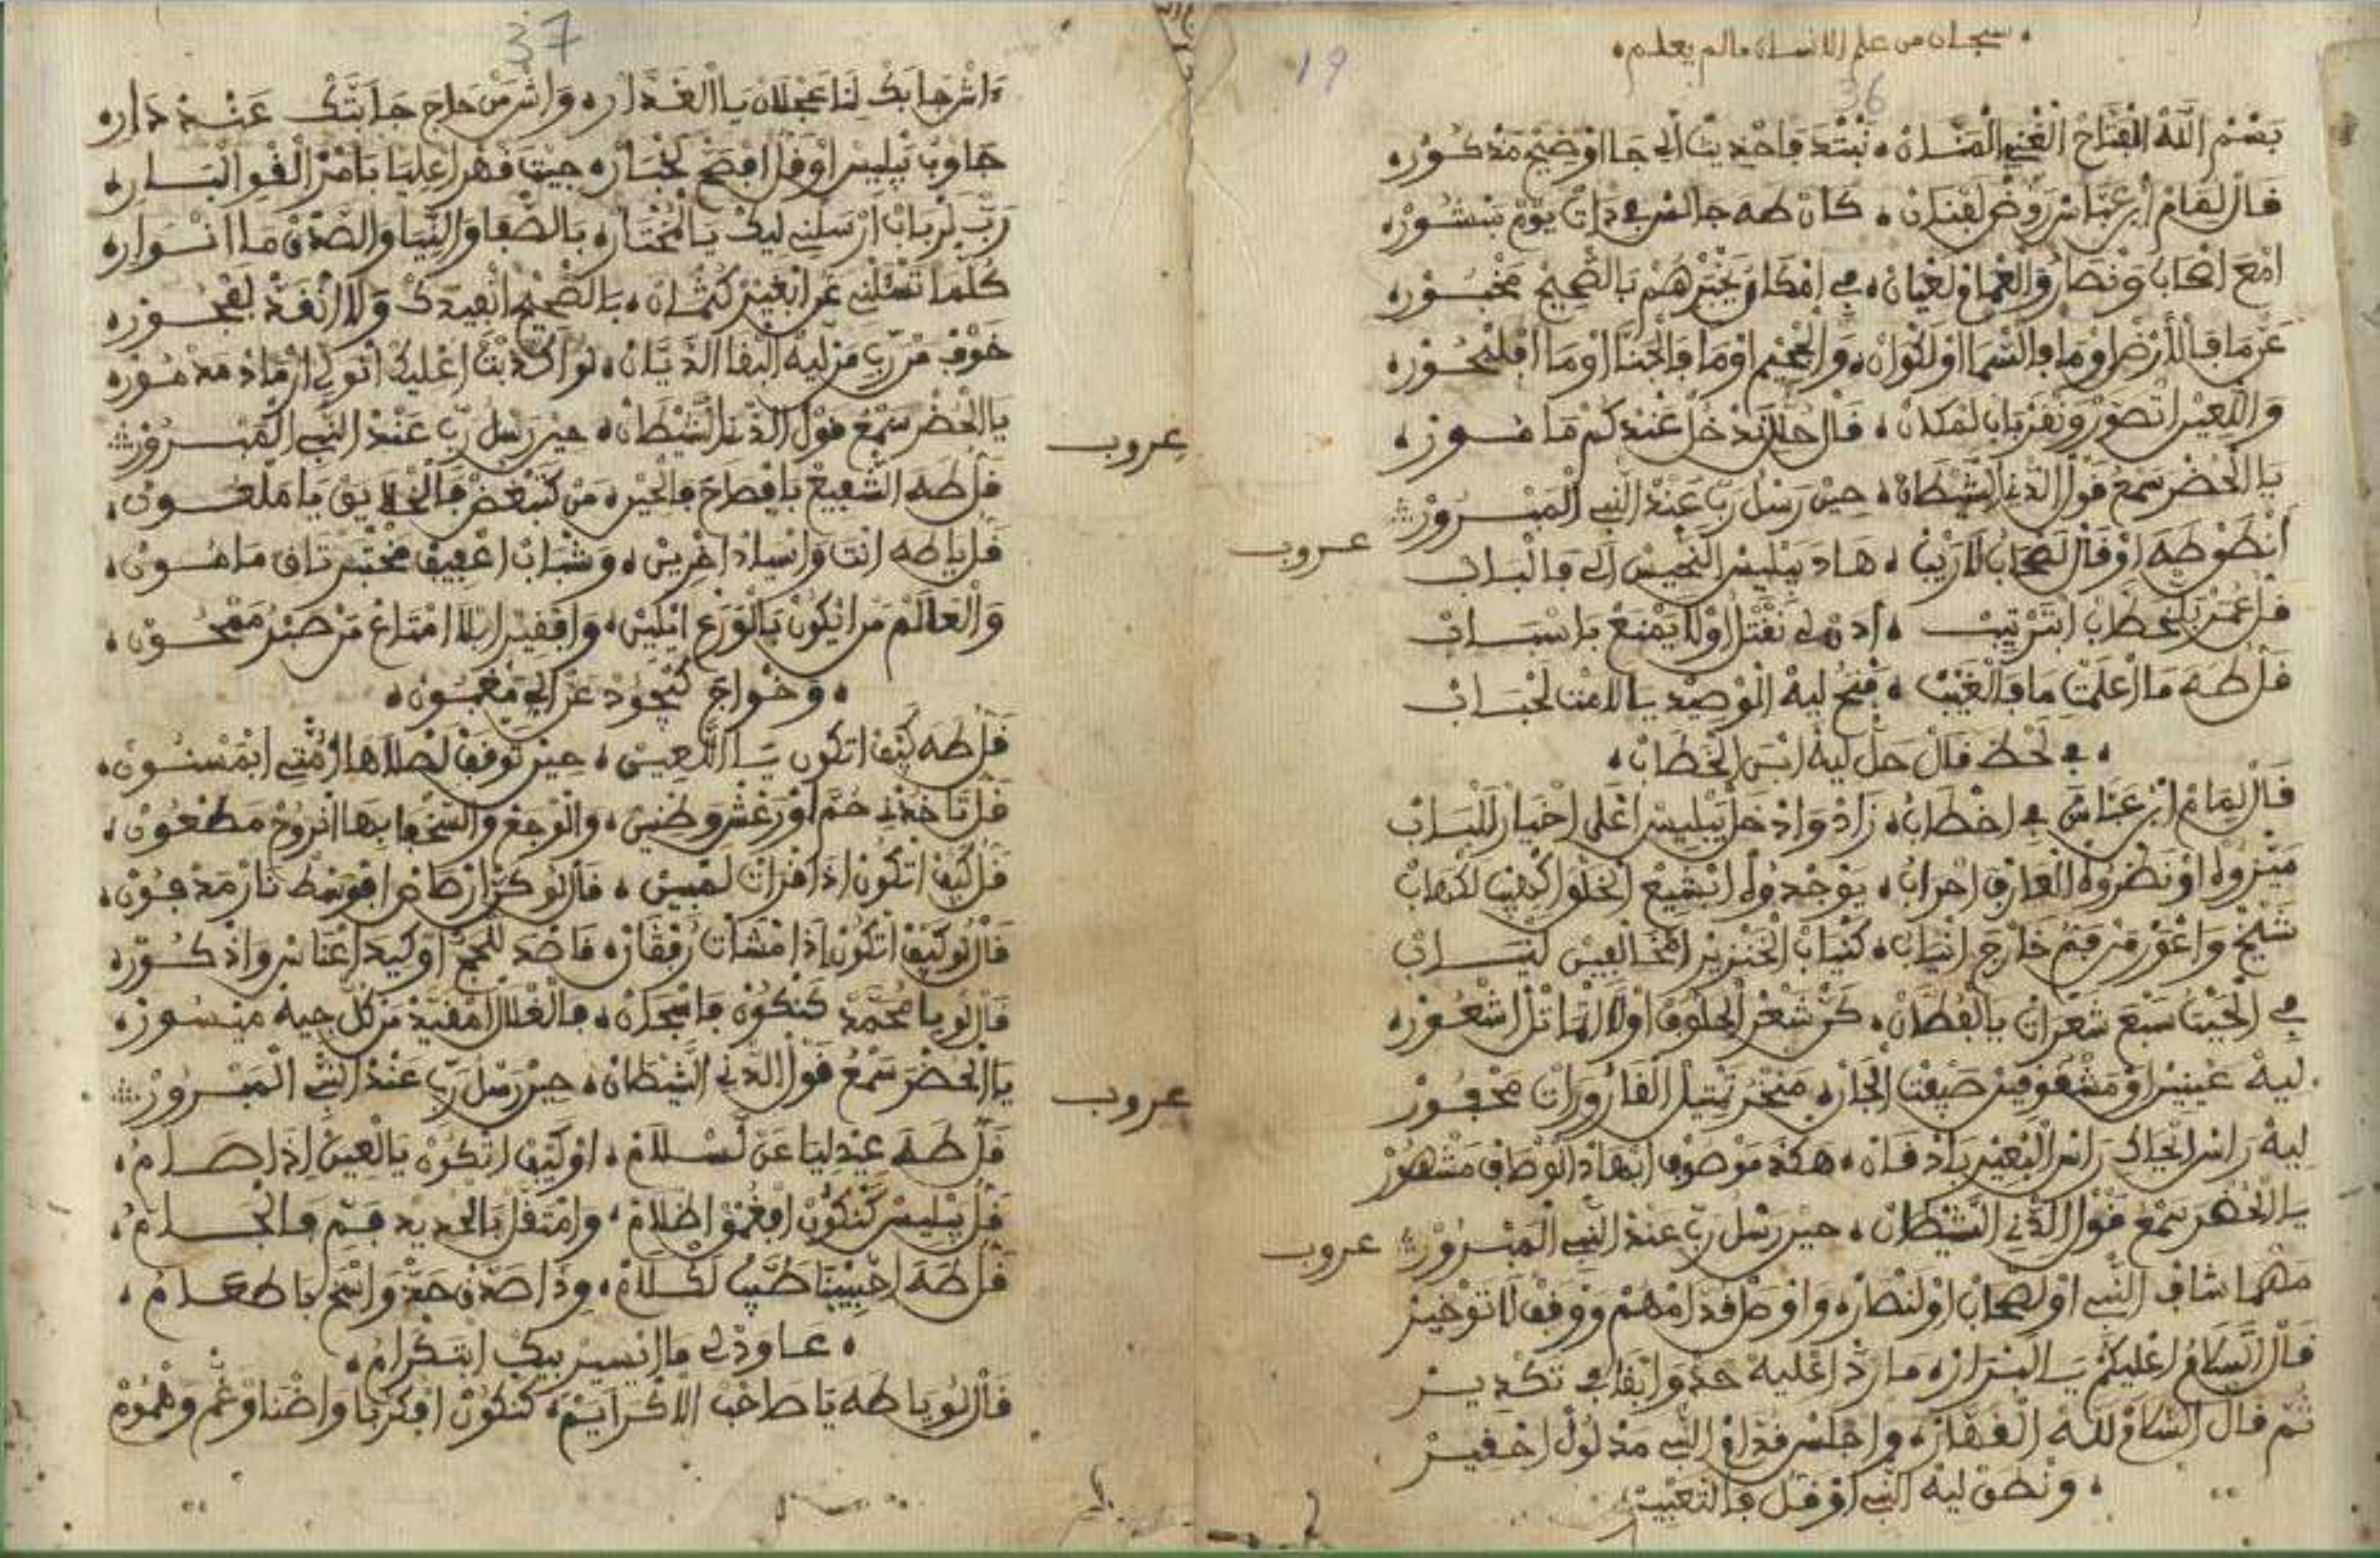 سبحان من علم الانسان مالم يعلم
19
36
بسم الله الفتاح الغني المنان نبتد فاحديث الي جا اوضيح مذكور
قال لمام ابن عباس روض لفنان كان طه جالس في ذات يوم بنشور
امع اصحاب ونصار والعمام لعيان في امكا يخبرهم بالصحيح مخبور
عن ما فالارض اوما فالسما اولكوان والجحيم اوما فالجنا اوما افلبحور
واللعين اتصور ونقر باب لمكان قال حل ندخل عندكم مامور
يا الحضر سمع قول الدني الشيطان حين رسل رب عند النبي المبرور
عروب
انطق طه اوقال لصحاب لا ريب هاد يبليس النحيس الي فالباب
قل عمر بلخطاب ابترتيب نقتل اولا يمنع باسباب
قل طه ما اعلمت ما فالغيب فتح ليه الوصيد يالامن لحباب
في لحظ قال حل ليه ابن الخطاب
قال ليمام ابن عباس في اخطاب زاد واد خل يبليس اعلى اخيار للباب
ميزوه اونظروه العارف احراب يوجدوه ابشيع الخلوا
شيخ واعور من فم خارج انياب كنياب الخنزير امخالفين
في الحيا سبع شعرات يالفطان كن شعر الحلوف اولا لها تل اشعور
ليه عينين اومشقوقين صيفت الجار منخر تنيل القارورات محفور
ليه راس انحاك راس البعير يادفان هكد موصوف ابهاد الوصاف مشهور
يا الحضر سمع قول الدني الشيطان حين رسل رب عند النبي المبرور
عروب
مهما شاف النبي اولصحاب اولنصار واوصل قدامهم ووقف لا توخير
قال السلام اعليكم يا لبرار ما رد اعليه حد وابقا في تكدير
ثم قال السلام لله الغفار واجلس قدام النبي مذلول احقير
ونطق ليه النبي اوقل فالتعبير
37
اش جابك لنا عجلان يا الغدار واش من حاج جابتك عند دار
جاوب يبليس اوقل افصح لخبار جيت قهر اعليا بامر القو البار
رب لرباب ارسلني ليك يالمختار بالصفا والنيا والصدق ما انوار
كلما تسلني عن ابغير كتمان بالصحيح انفيدك ولا انقد لفجور
خوف من رب من ليه البقا الديان لو اكدبت اعليك انولي ارماد مدمور
يا الحضر سمع قول الدني الشيطان حين رسل رب عند النبي المبرور
عروب
قل طه الشفيع بافصاح فالحين من كتبغض فالخلايق يا ملعون
قل ياطه انت واسياد اخرين وشباب اعفيف مختبر تاق ماهون
والعالم من ايكون بالورع ايلين وافقير ابلا امتاع من صبر ممحون
وخواج كيجود عن الي مغبون
قل طه كيف اتكون يا اللعين حين توقف لصلاها امتي ابمسنون
قل تاخدني حم اورعش وطنين والوجع والسخفا بها الروح مطعون
قل كيف اتكون اذا قرات لمبين قالو كن ارصاص افوسط نار مدفون
قالو كيف اتكون اذا مشات رفقان قاصد للحج اوكيد اعناس واذكور
قالو يا محمد كنكون فاسجان فالغلال امقيد من كل جيه ميسور
يا الحضر سمع قول الدني الشيطان حين رسل رب عند النبي المبرور
عروب
قل طه عيد ليا عن لسلام اوكيف اتكون يالعين اذا صام
قل يبليس كنكون افغمق اظلام وامتقل بالحديد فم فالجام
قل طه احبيبنا طيب لكلام وذا صدق حد واسخ باطعام
عاودلي ما ايسير بيك ابتكرام
قالو يا طه يا صاحب الاكرايم كنكون افكربا واضنا وغم وهموم